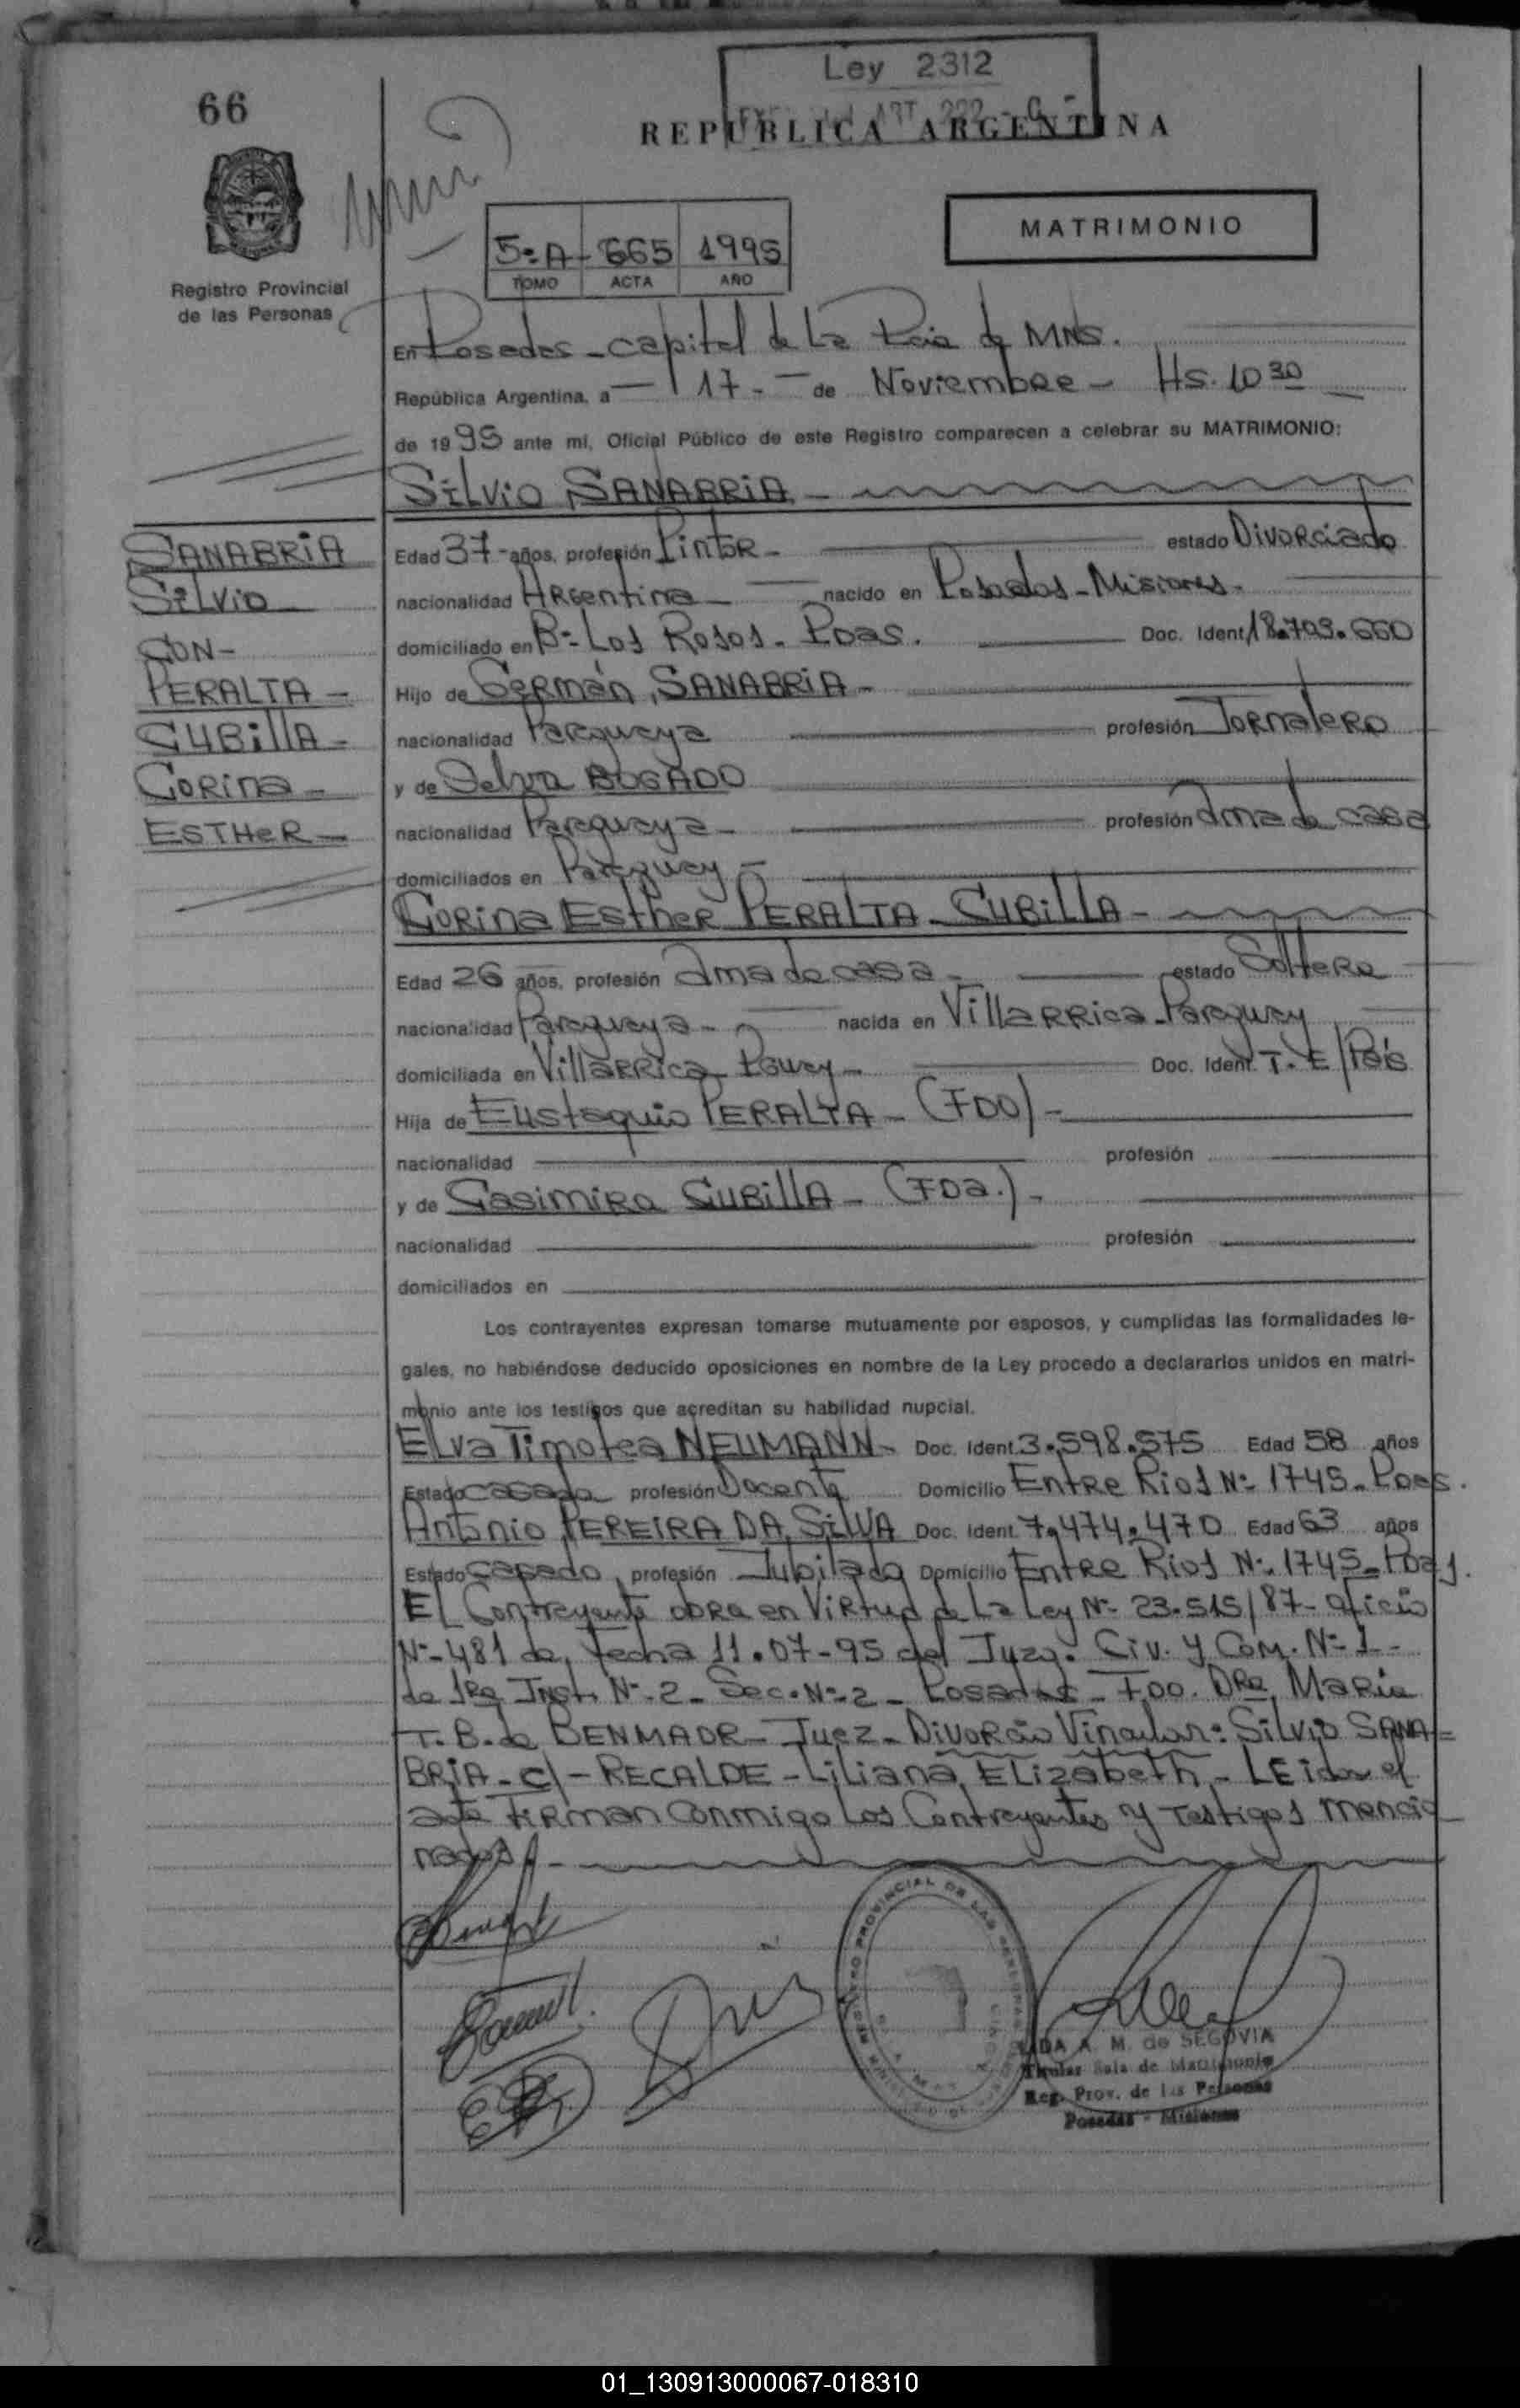 Ley 2312
66
REPUBLICA ARGENTINA
MATRIMONIO
5º A - 665 1995
TOMO ACTA AÑO
Registro Provincial
de las Personas
En Posadas - capital de La Pcia de MNS.
República Argentina, a 17 - de Noviembre - Hs. 10 30
de 1995 ante mí, Oficial Público de este Registro comparecen a celebrar su MATRIMONIO:
Silvio SANABRIA -
SANABRIA
Silvio
CON -
PERALTA -
CUBillA -
Corina -
ESTHeR -
Edad 37 - años, profesión Pintor - estado Divorciado
nacionalidad Argentina - nacido en Posadas - Misiones -
domiciliado en Bº Los Rosos - Pdas. Doc. Ident. 18.703.660
Hijo de Germán, SANABRIA -
nacionalidad Paraguaya profesión Jornalero
y de Selva BOGADO
nacionalidad Paraguaya - profesión Ama de casa
domiciliados en Paraguay -
Corina Esther PERALTA - CUBillA -
Edad 26 años, profesión Ama de casa - estado Soltera
nacionalidad Paraguaya - nacida en Villarrica - Paraguay
domiciliada en Villarrica - Pguay - Doc. Ident. T. E/País
Hija de Eustaquio PERALTA - (FDO) -
nacionalidad profesión
y de Casimira CUBillA - (FDa.) -
nacionalidad profesión
domiciliados en
Los contrayentes expresan tomarse mutuamente por esposos, y cumplidas las formalidades le-
gales, no habiéndose deducido oposiciones en nombre de la Ley procedo a declararlos unidos en matri-
monio ante los testigos que acreditan su habilidad nupcial.
Elva Timotea NEUMANN - Doc. Ident. 3.598.575 Edad 58 años
Estado casada profesión Docente Domicilio Entre Rios Nº 1745 - Pdas.
Antonio PEREIRA DA SILVA Doc. Ident. 7.474.470 Edad 63 años
Estado casado, profesión Jubilado Domicilio Entre Rios Nº 1745 - Pdas.
El Contrayente obra en Virtud de La Ley Nº 23.515/87 - oficio
Nº - 481 de fecha 11.07-95 del Juzg. Civ. y Com. Nº 1 -
de 1ra Inst. Nº - 2 - Sec. Nº 2 - Posadas - FDO. DRa María
T. B. de BENMAOR - Juez - Divorcio Vincular: Silvio SANA=
BRIA - c/ - RECALDE - Liliana, Elizabeth - LEida el
acta Firman conmigo Los Contrayentes y Testigos mencio
nados -
REGISTRO PROVINCIAL DE LAS PERSONAS
LIDA A. M. de SEGOVIA
Titular Sala de Matrimonio
Reg. Prov. de las Personas
Posadas - Misiones
01_130913000067-018310